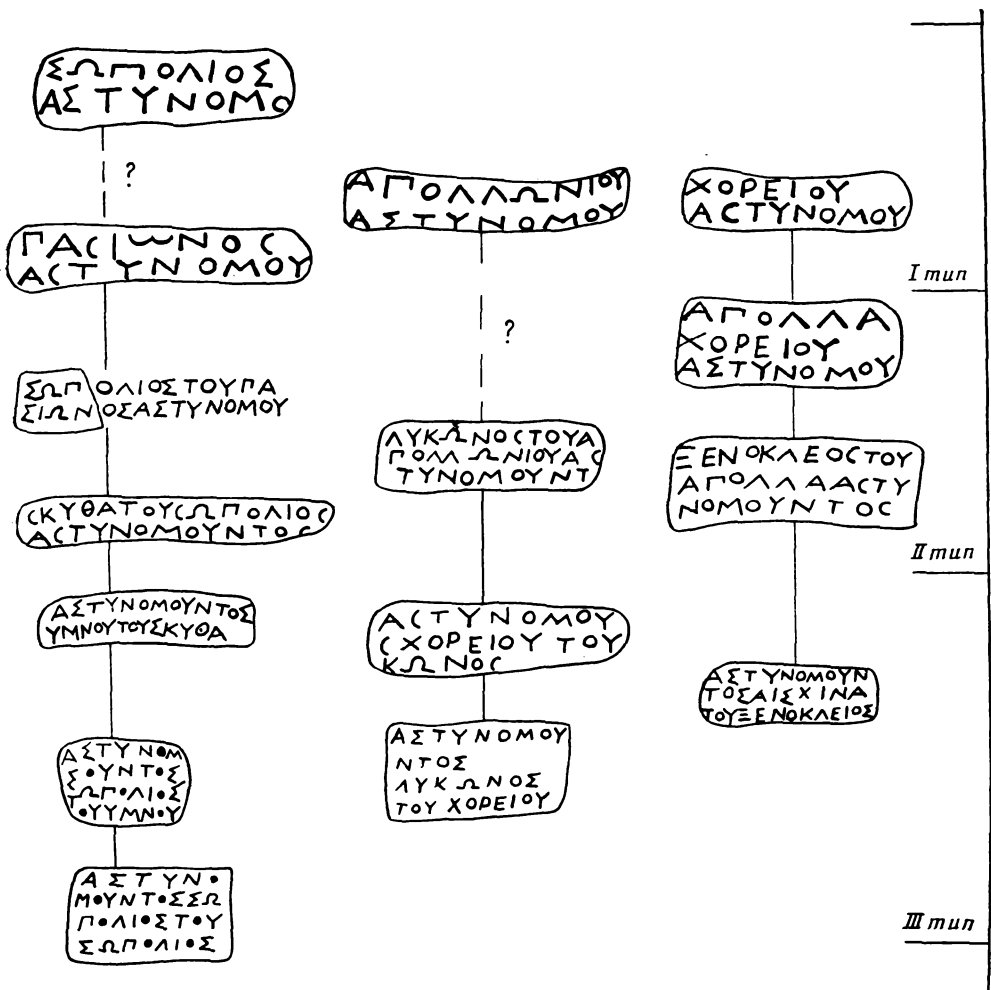 ΣΩΠΟΛΙΟΣ
ΑΣΤΥΝΟΜΟ
?
ΠΑϹΙΩΝΟϹ
ΑϹΤΥΝΟΜΟΥ
ΣΩΠΟΛΙΟΣΤΟΥΠΑ
ΣΙΩΝΟΣΑΣΤΥΝΟΜΟΥ
ϹΚΥΘΑΤΟΥϹΩΠΟΛΙΟϹ
ΑϹΤΥΝΟΜΟΥΝΤΟϹ
ΑΣΤΥΝΟΜΟΥΝΤΟΣ
ΥΜΝΟΥΤΟΥΣΚΥΘΑ
ΑΣΤΥΝΟΜ
ΣΟΥΝΤΟΣ
ΩΠΟΛΙΟΣ
ΤΟΥΥΜΝΟΥ
ΑΣΤΥΝΟ
ΜΟΥΝΤΟΣΣΩ
ΠΟΛΙΟΣΤΟΥ
ΣΩΠΟΛΙΟΣ
ΑΠΟΛΛΩΝΙΟΥ
ΑΣΤΥΝΟΜΟΥ
?
ΛΥΚΩΝΟϹΤΟΥΑ
ΠΟΛΛΩΝΙΟΥΑϹ
ΤΥΝΟΜΟΥΝΤ
ΑϹΤΥΝΟΜΟΥ
ϹΧΟΡΕΙΟΥΤΟΥ
ΚΩΝΟϹ
ΑΣΤΥΝΟΜΟΥ
ΝΤΟΣ
ΛΥΚΩΝΟΣ
ΤΟΥ ΧΟΡΕΙΟΥ
ΧΟΡΕΙΟΥ
ΑϹΤΥΝΟΜΟΥ
ΑΠΟΛΛΑ
ΧΟΡΕΙΟΥ
ΑΣΤΥΝΟΜΟΥ
ΞΕΝΟΚΛΕΟϹΤΟΥ
ΑΠΟΛΛΑΑϹΤΥ
ΝΟΜΟΥΝΤΟϹ
ΑΣΤΥΝΟΜΟΥΝ
ΤΟΣΑΙΣΧΙΝΑ
ΤΟΥΞΕΝΟΚΛΕΙΟΣ
I тип
II тип
III тип